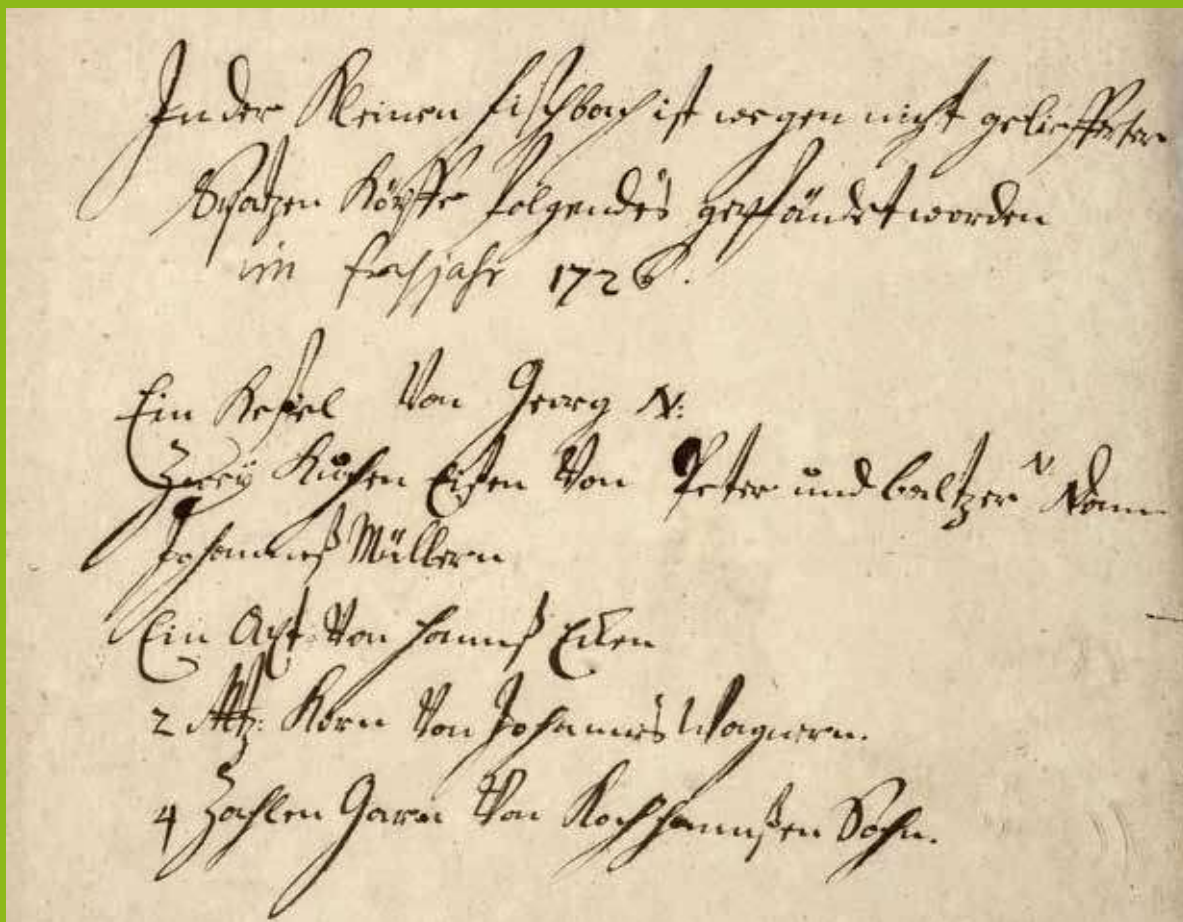 In der Kleinen Fischbach ist wegen nicht gelieffterter
Spatzen Köpffe folgendes gepfändet worden
im frühjahr 1726.
Ein Keßel Von Georg N:
Zwey Kuchen Eißen Von Peter und baltzer N
Johanneß Müllern
Ein Axt Von Hannß Eilen
2 Mtz: Korn Von Johannes Wagnern.
4 Zahlen Garn Von Koch hannßen Sohn.